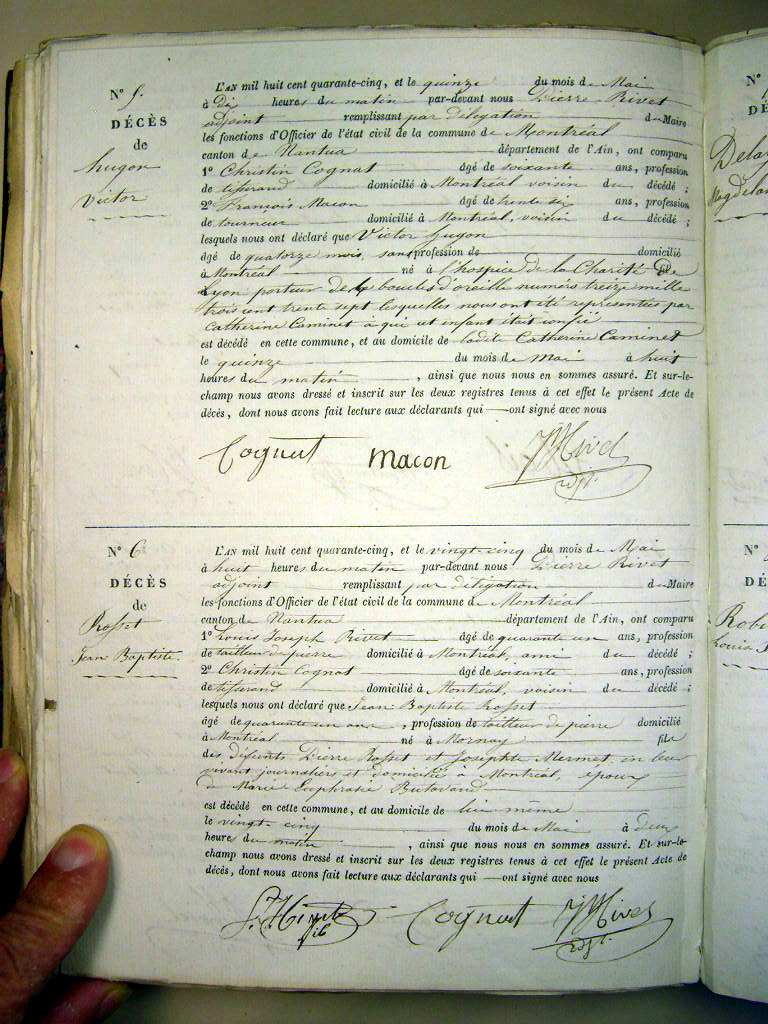 N° 5.
DÉCÈS
de
hugon
Victor
L'AN mil huit cent quarante-cinq, et le quinze du mois de Mai
à dix heures du matin par-devant nous Pierre Rivet
adjoint remplissant par délégation de Maire
les fonctions d'Officier de l'état civil de la commune de Montréal
canton de Nantua département de l'Ain, ont comparu
1° Christin Cognat âgé de soixante ans, profession
de tisserand domicilié à Montréal voisin du décédé ;
2° François Macon âgé de trente six ans, profession
de tourneur domicilié à Montréal, voisin du décédé ;
lesquels nous ont déclaré que Victor hugon
âgé de quatorze mois, sans profession de domicilié
à Montréal né à l'hospice de la Charité de
Lyon porteur de boucles d'oreille numéro treize mille
trois cent trente sept lesquelles nous ont été représentées par
Catherine Caminet à qui cet enfant était confié
est décédé en cette commune, et au domicile de ladite Catherine Caminet
le quinze du mois de Mai à huit
heures du matin , ainsi que nous nous en sommes assuré. Et sur-le-
champ nous avons dressé et inscrit sur les deux registres tenus à cet effet le présent Acte de
décès, dont nous avons fait lecture aux déclarants qui ont signé avec nous
Cognat Macon Rivet
adjt.
N° 6
DÉCÈS
de
Rosset
Jean Baptiste.
L'AN mil huit cent quarante-cinq, et le vingt-cinq du mois de Mai
à huit heures du matin par-devant nous Pierre Rivet
adjoint remplissant par délégation de Maire
les fonctions d'Officier de l'état civil de la commune de Montréal
canton de Nantua département de l'Ain, ont comparu
1° Louis Joseph Rivet âgé de quarante un ans, profession
de tailleur de pierre domicilié à Montréal, ami du décédé ;
2° Christin Cognat âgé de soixante ans, profession
de tisserand domicilié à Montréal, voisin du décédé ;
lesquels nous ont déclaré que Jean Baptiste Rosset
âgé de quarante un ans , profession de tailleur de pierre domicilié
à Montréal né à Mornay fils
des défunts Pierre Rosset et Josephte Mermet en leur
vivant journaliers et domiciliés à Montréal, époux
de Marie Euphrasie Butavand
est décédé en cette commune, et au domicile de lui même
le vingt cinq du mois de Mai à deux
heures du matin , ainsi que nous nous en sommes assuré. Et sur-le-
champ nous avons dressé et inscrit sur les deux registres tenus à cet effet le présent Acte de
décès, dont nous avons fait lecture aux déclarants qui ont signé avec nous
Cognat Rivet
adjt.
N°
Magdelai
N°
DÉ
Robi
Louis